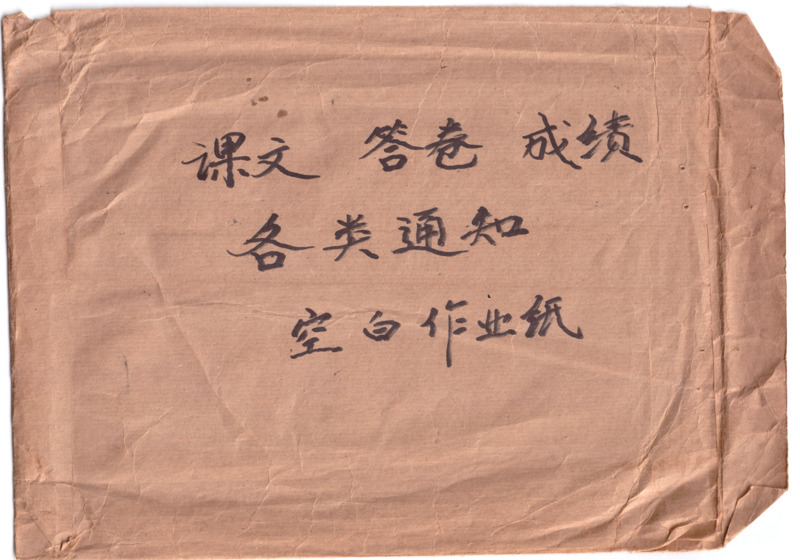 课文 答卷 成绩
各类通知
空白作业纸